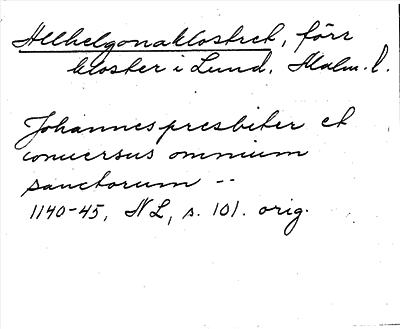 Allhelgonaklostret, förr
kloster i Lund, Malm. l.
Johannes presbiter et
conuersus omnium
sanctorum --
1140-45, NL, s. 101. orig.